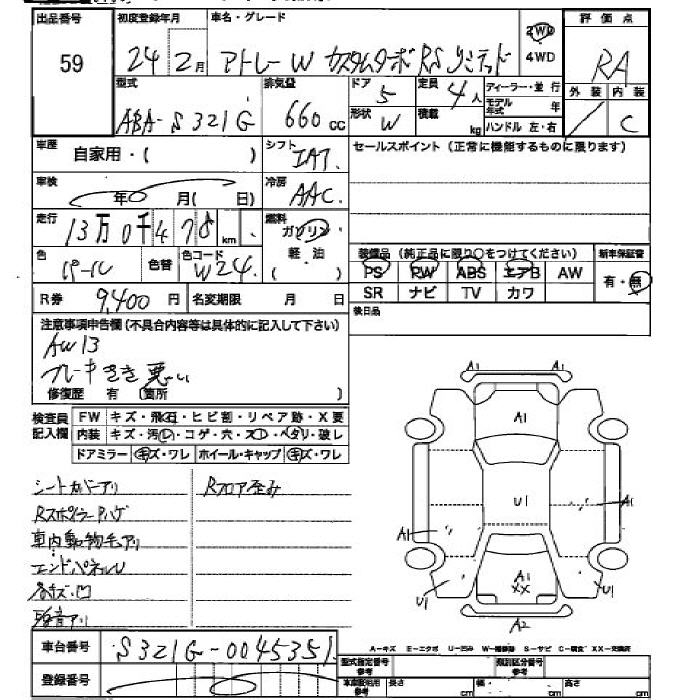 出品番号 初度登録年月 車名・グレード 2WD 評価点
59 24年 2月 アトレーW カスタムターボRSリミテッド 4WD RA
型式 排気量 ドア 定員 ディーラー・並行 外装 内装
ABA-S321G 660cc 5 4人 モデル年式 年 / C
形状 W 積載 kg ハンドル 左・右
車歴 自家用・( ) シフト IAT セールスポイント (正常に機能するものに限ります)
車検 年 月( 日) 冷房 AAC
走行 13万0千478km 燃料 ガソリン
軽・油 装備品 (純正品に限り○をつけてください) 新車保証書
色 パール 色替 色コード W24 PS PW ABS エアB AW 有・無
R券 9,400円 名変期限 月 日 SR ナビ TV カワ
注意事項申告欄(不具合内容等は具体的に記入して下さい) 後日品
AW13
ブレーキきき悪い
修復歴 有 (箇所 )
検査員 FW キズ・飛石・ヒビ割・リペア跡・X要
記入欄 内装 キズ・汚レ・コゲ・穴・スレ・ヘタリ・破レ
ドアミラー キズ・ワレ ホイール・キャップ キズ・ワレ
シートカバーアリ Rフロア歪み
Rスポイラーハゲ
車内動物毛アリ
エンドパネルU
各キズ・凹
アリ
A1
A1
U1
A1 A1
A1
XX
U1 U1
A2
A-キズ E-エクボ U-凹ミ S-サビ XX-交換済
車台番号 S321G-0045351
登録番号
型式指定番号 参考 類別区分番号 参考
参考 長さ cm 幅・ cm 高さ cm